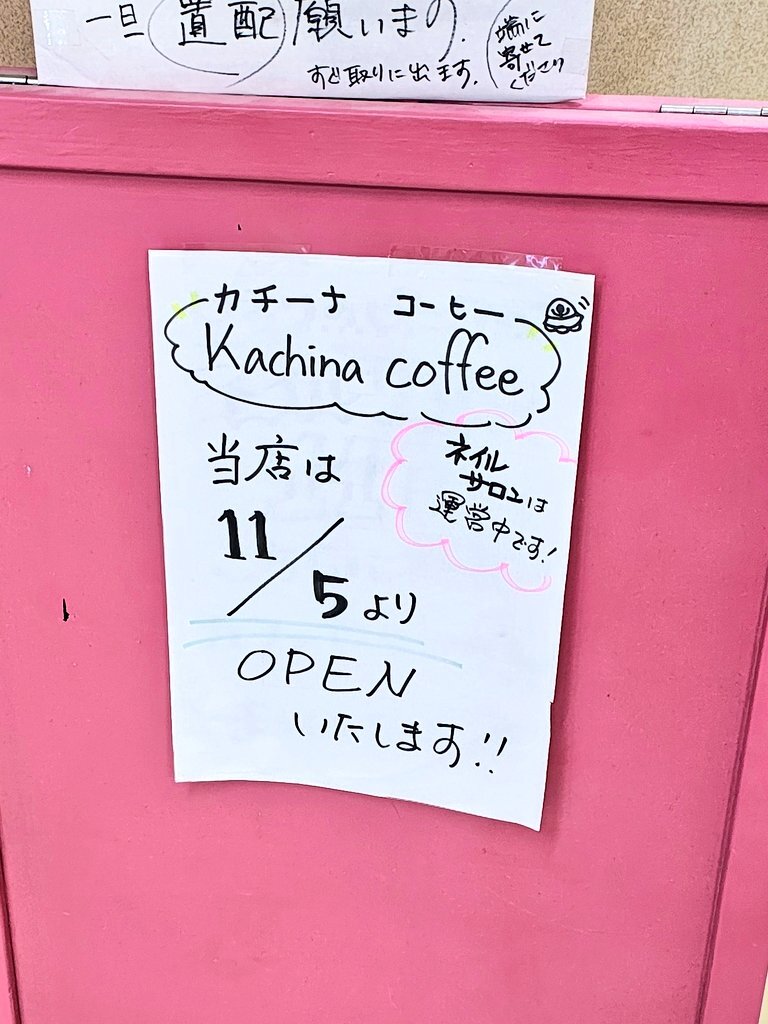 一旦 置配 願います.
すぐ取りに出ます.
端に
寄せて
ください
カチーナ コーヒー
Kachina coffee
ネイル
サロンは
運営中です!
当店は
11/5より
OPEN
いたします!!